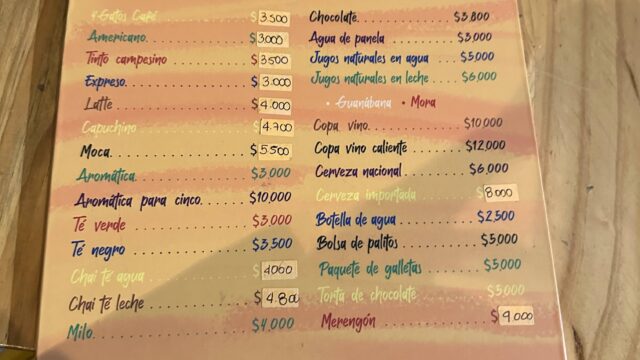 4 Gatos Café ........ $3.500
Americano ........ $3000
Tinto campesino ........ $3500
Expreso ........ $3.000
Latte ........ $4.000
Capuchino ........ $4.700
Moca ........ $5500
Aromática ........ $3,000
Aromática para cinco ........ $10,000
Té verde ........ $3,000
Té negro ........ $3,500
Chai té agua ........ $4000
Chai té leche ........ $4.800
Milo ........ $4,000
Chocolate ........ $3,800
Agua de panela ........ $3,000
Jugos naturales en agua ..... $5,000
Jugos naturales en leche ..... $6,000
• Guanábana • Mora
Copa vino ........ $10,000
Copa vino caliente ........ $12,000
Cerveza nacional ........ $6,000
Cerveza importada ........ $8000
Botella de agua ........ $2,500
Bolsa de palitos ........ $5,000
Paquete de galletas ........ $5,000
Torta de chocolate ........ $5,000
Merengón ........ $9,000